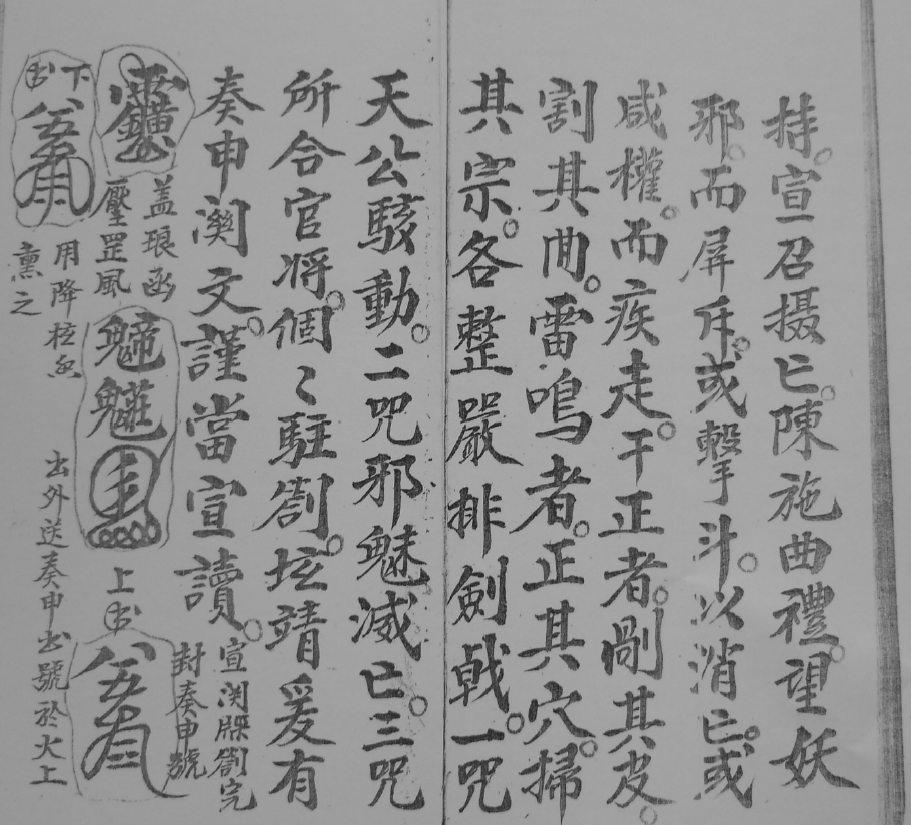 持。宣召摄亡。陳施曲禮。望妖
邪。而屏斥。或撃斗。以消亡。或
咸權。而疾走。干正者。剮其皮。
割其肉。雷鳴者。正其穴。掃
其宗。各整嚴排劍戟。一咒
天公駭動。二咒邪魅滅亡。三咒
所合官将。個〻駐劄。坛靖爰有
奏申文。謹當宣讀。
宣関牒劄完
封奏申號
盖琅函
壓罡風
上书
下书
用降
熏之
出外送奏申出號於火上